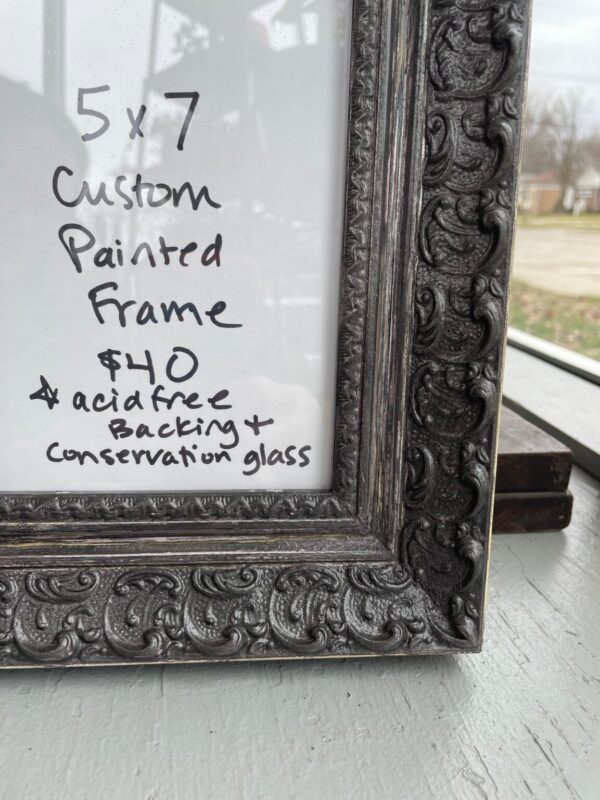 5x7
Custom
Painted
Frame
$40
* acid free
Backing +
Conservation glass